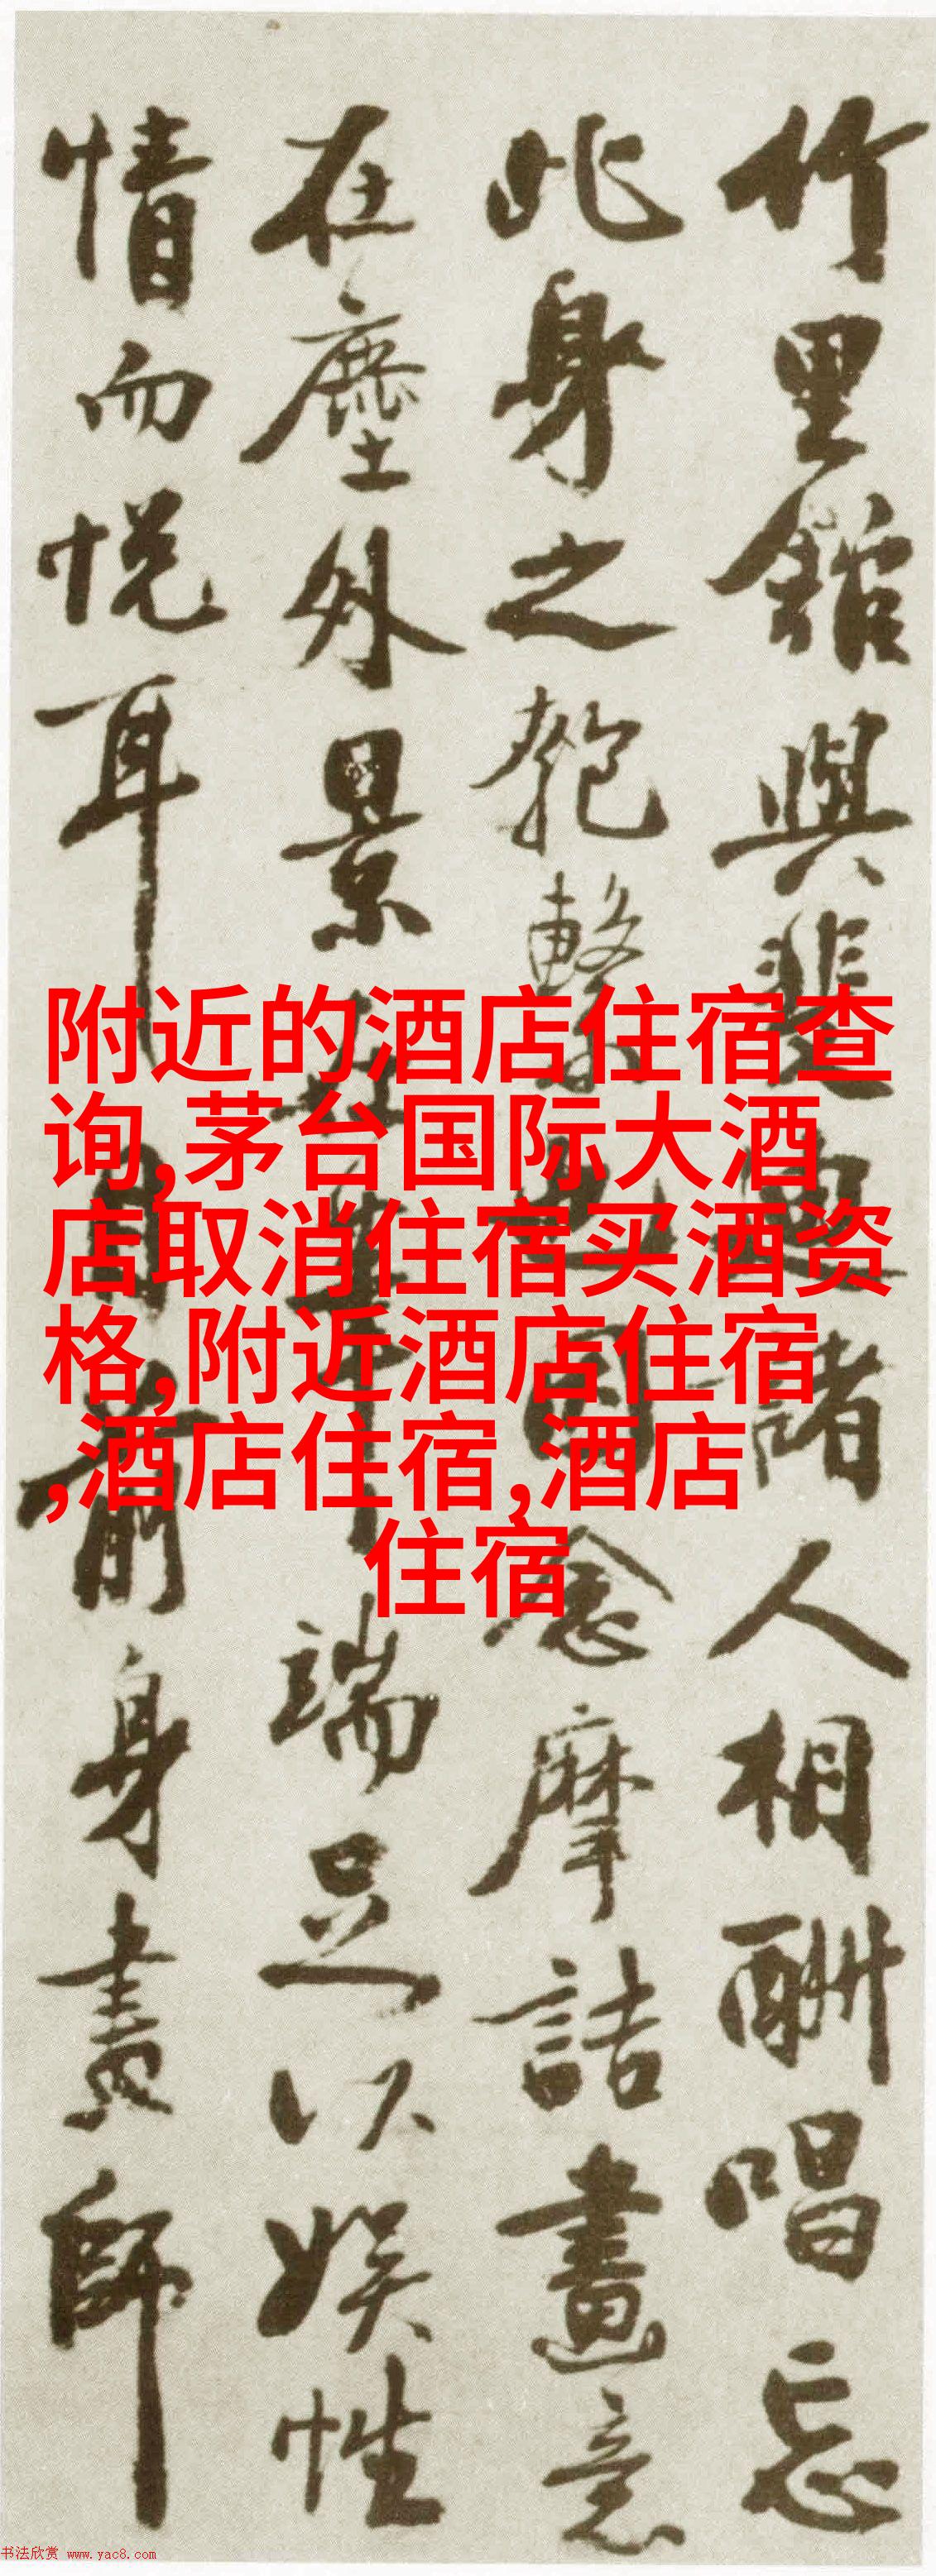 竹里館與裴迪諸人相酬唱忘
此身之匏繫也因念摩詰畫意
在塵外景在筆端足以娛性
情而悅耳目前身畫師
附近的酒店住宿查
询,茅台国际大酒
店取消住宿买酒资
格,附近酒店住宿
,酒店住宿,酒店
住宿
书法欣赏 www.yac8.com